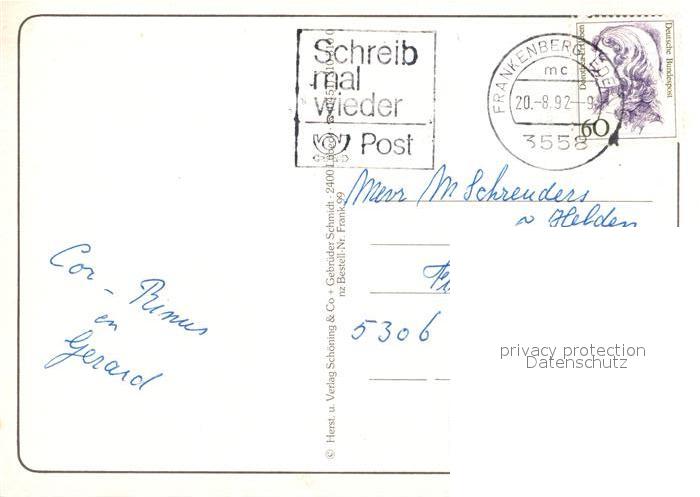 Schreib
mal
wieder
Post
FRANKENBERG, EDER
mc
20.-8.92-9
3558
Deutsche Bundespost
60
Mevr M Schreuders
v Helden
5306
Cor - Rinus
en
Gerard
© Herst. u. Verlag Schöning & Co + Gebrüder Schmidt · 2400 Lübeck
nz Bestell-Nr. Frank 99
privacy protection
Datenschutz